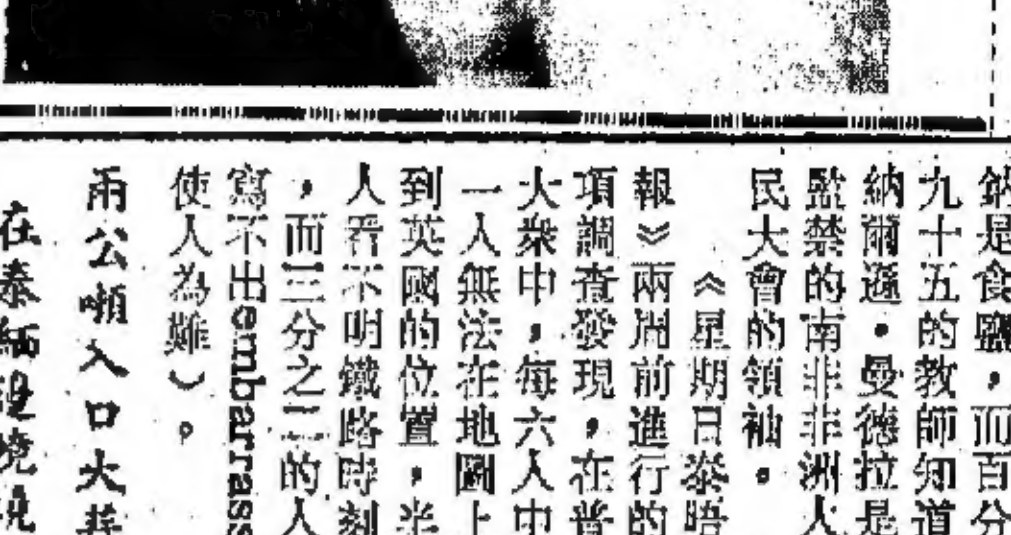 鈉是食鹽,而百分
九十五的教師知道
納爾遜·曼德拉是
監禁的南非非洲人
民大會的領袖。
《星期日泰晤
報》兩周前進行的
項調查發現,在普
大衆中,每六人中
一人無法在地圖上
到英國的位置,半
人看不明鐵路時刻
,而三分之二的人
寫不出embarrass
使人為難)。
兩公噸入口大麻
在泰緬邊境